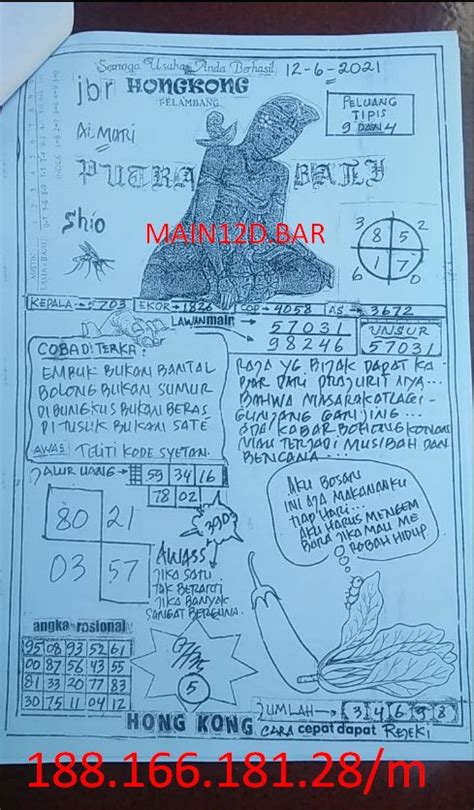 Semoga Usaha Anda Berhasil
12-6-2021
jbr HONGKONG
PELAMBANG
PELUANG
TIPIS
9 DAN 4
Ai. MORI
PUTRA BALI
Shio
MAIN12D.BAR
3 8 5 2
6 1 7 0
KEPALA→5703 EKOR→1826 COP→4058 AS→3672
LAWAN main → 57031
98246
UNSUR
57031
COBA DITERKA:
EMPUK BUKAN BANTAL
BOLONG BUKAN SUMUR
DIBUNGKUS BUKAN BERAS
DITUSUK BUKAN SATE
AWAS TELITI KODE SYETAN.
RAJA YG. BIJAK DAPAT KA
BAR DARI PRAJURIT NYA...
BAHWA MASARAKAT LAGI-
GUNJANG GANJING...
ADA KABAR BOHONG KONON
MAU TERJADI MUSIBAH DAN
BENCANA
JALUR UANG→ 59 34 16
78 02
80 21
03 57
AWASS
JIKA SATU
TAK BERARTI
JIKA BANYAK
SANGAT BERGUNA.
AKU BOSAN
INI AJA MAKANANKU
TIAP HARI...
AKU HARUS MENGEM
BARA JIKA MAU ME
ROBAH HIDUP
angka rasional
95 08 93 52 61
00 87 56 43 55
81 33 20 77 83
30 75 11 04 12
5
JUMLAH→ 3 4 6 9 8
HONG KONG CARA cepat dapat REJEKI
188.166.181.28/m